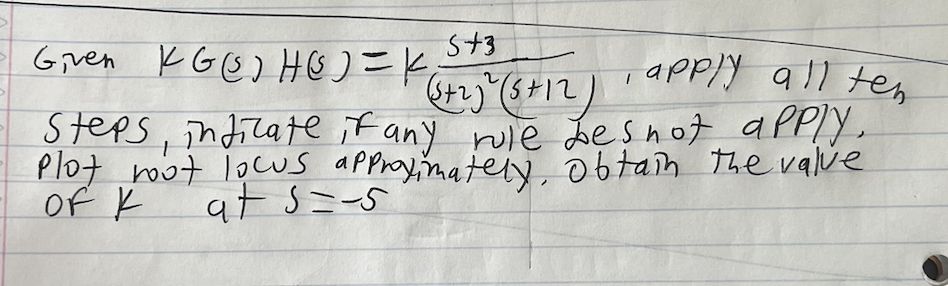 Given KG(s) H(s) = K (s+3)/((s+2)²(s+12)) , apply all ten
steps, indicate if any rule does not apply.
Plot root locus approximately. Obtain the value
of K at s=-5